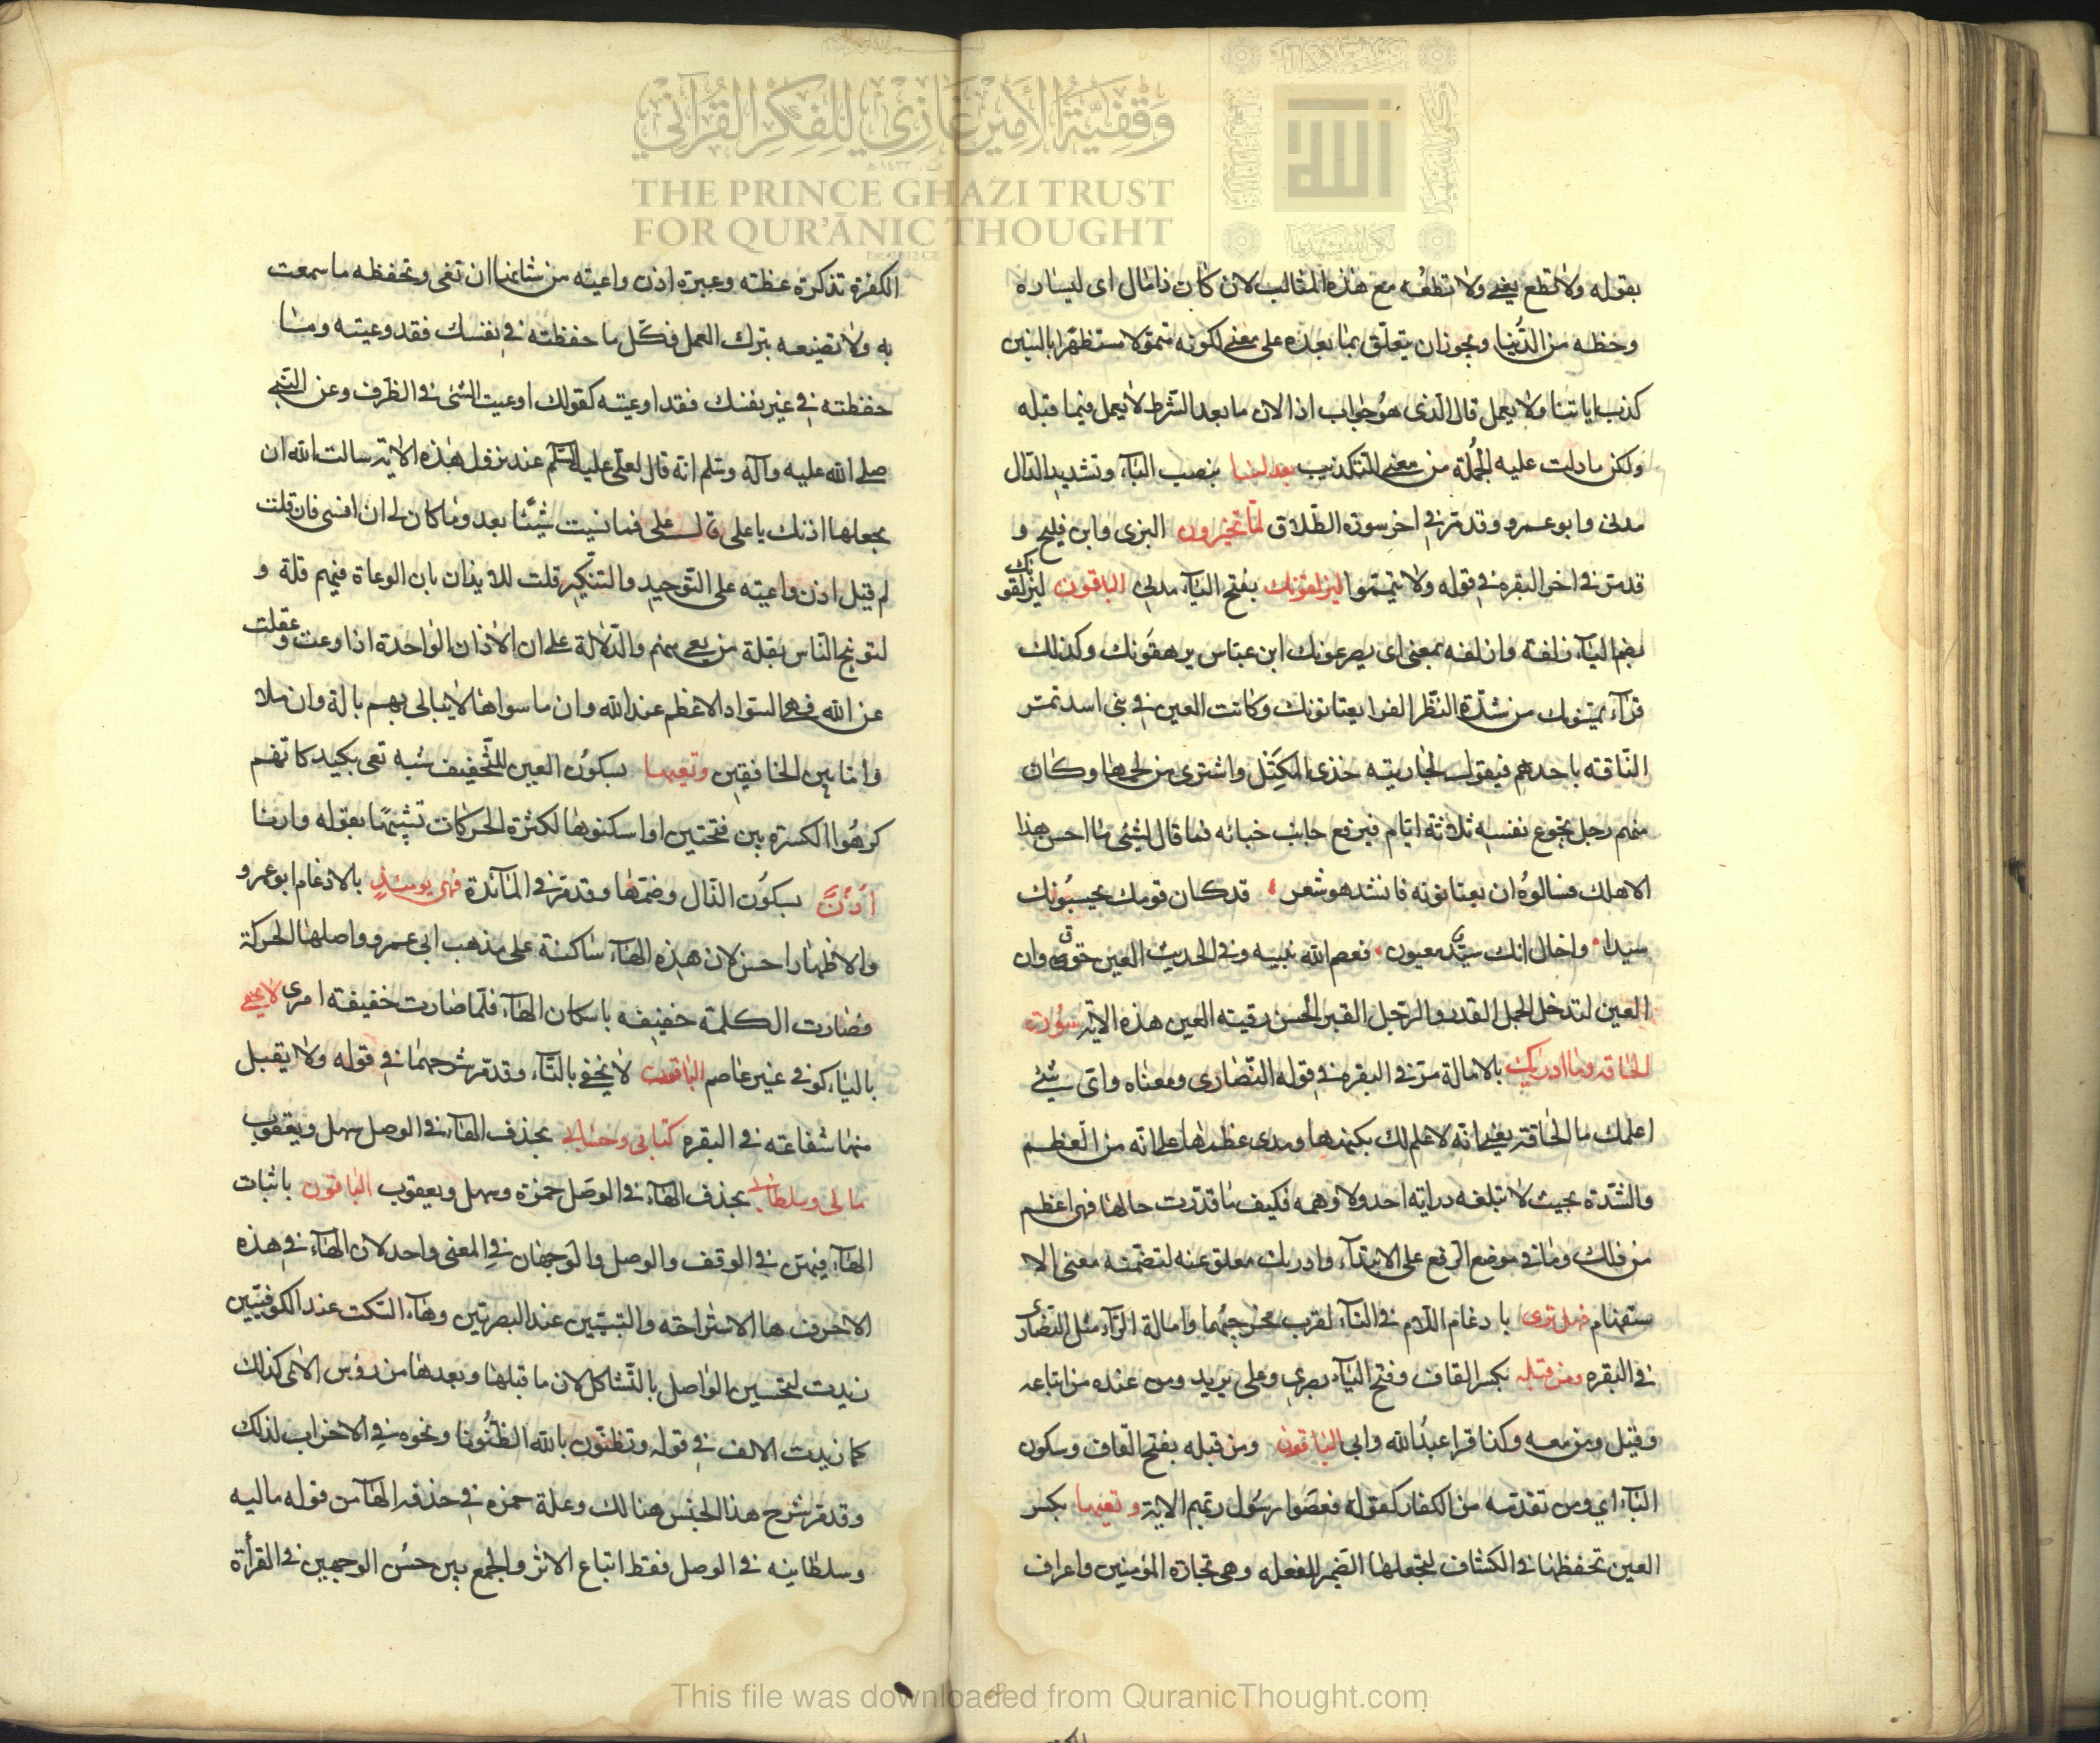 بقوله ولا تطع يعني ولا تطعه مع هذه المثالب لان كان ذا مال اى ليساره
وحظه من الدنيا ويجوز ان يتعلق بما بعده على معنى لكونه متمولا مستظهرا بالبنين
كذب اياتنا ولا يعمل قال الذى هو جواب اذا لان ما بعد الشرط لا يعمل فيما قبله
ولكن ما دلت عليه الجملة من معنى التكذيب يبدلنا بنصب الباء وتشديد الدال
مدنى وابو عمرو وقد مر فى اخر سورة الطلاق لما تخيرون البزى وابن فليح و
قد مر فى اخر البقره فى قوله ولا تيمموا ليزلقونك بفتح الياء مدنى الباقون ليزلقونك
بضم الياء زلفه وازلفه بمعنى اى يصرعونك ابن عباس يرهقونك وكذلك
قراء من شدة النظر الفرا يعتانونك وكانت العين فى بنى اسد تمر
الناقه باحدهم فيقول لجاريته خذى المكتل واشترى من لحمها وكان
منهم رجل يجوع نفسه ثلاثة ايام فيرفع جانب خبائه فما قال لشئ ما احسن هذا
الا هلك فسالوه ان يعتانونه فانشدهو شعر قد كان قومك يحسبونك
سيدا واخال انك سيد معيون فعصم الله نبيه وفى الحديث العين حق وان
العين لتدخل الجمل القدر والرجل القبر الحسن رقية العين هذه الاية سورت
الحاقه وما ادريك بالامالة مر فى البقره فى قوله النصارى ومعناه واى شئ
اعلمك ما الحاقة يعنى انه لا علم لك بكنهها ومدى عظمها على انه من العظم
والشدة بحيث لا تبلغه دراية احد ولا وهمه فكيف ما قدرت حالها فهى اعظم
من ذلك وما فى موضع الرفع على الابتداء وادريك معلق عنه لتضمنه معنى الا
ستفهام فهل ترى با دغام اللام فى التاء لقرب مخرجهما وامالة الراء مثل النصارى
فى البقره ومن قبله بكسر القاف وفتح الباء بصرى وعلى يريد ومن عنده من اتباعه
وقيل ومن معه وكذا قرا عبد الله وابى الباقون ومن قبله بفتح القاف وسكون
الباء اي ومن تقدمه من الكفار كقوله فعصوا رسول ربهم الاية وتعيها بكسر
العين تحفظها فى الكشاف لنجعلها الضمير للفعله وهى نجاة المؤمنين واغراق
الكفرة تذكرة عظته وعبرة اذن واعيته من شانها ان تعى وتحفظه ما سمعت
به ولا تضيعه بترك العمل فكل ما حفظته فى نفسك فقد وعيته وما
حفظته فى غير نفسك فقد اوعيته كقولك اوعيت الشئ فى الظرف وعن النبى
صلى الله عليه وآله وسلم انه قال لعلى عليه السلم عند نزول هذه الاية سالت الله ان
يجعلها اذنك يا على قال على فما نسيت شيئا بعد وما كان لى ان انسى فان قلت
لم قيل اذن واعيته على التوحيد والتنكير قلت للايذان بان الوعاة فيهم قلة و
لتوبيخ الناس بقلة من يعى منهم والدلالة على ان الاذن الواحدة اذا وعت وعقلت
عن الله فهى السواد الاعظم عند الله وان ما سواها لا يبالى بهم بالة وان ملا
وا ما بين الخافقين وتعيها بسكون العين للتخفيف شبه تعى بكبد كانهم
كرهوا الكسرة بين فتحتين او اسكنوها لكثرة الحركات تشبيها بقوله وارنا
اذن بسكون الذال وضمها وقد مر فى المائدة فهى يومئذ بالادغام ابو عمرو
والاظهار احسن لان هذه الهاء ساكنة على مذهب ابى عمرو واصلها الحركة
فصارت الكلمة خفيفه باسكان الهاء فلما صارت خفيفته امرى لا يخفى
بالياء كوفى غير عاصم الباقون لا تخفى بالتاء وقد مر شرحهما فى قوله ولا يقبل
منها شفاعته فى البقره كتابى وحسابى بحذف الهاء فى الوصل سهل ويعقوب
مالى وسلطانى بحذف الهاء فى الوصل حمزة وسهل ويعقوب الباقون باثبات
الهاء فيهن فى الوقف والوصل والوجهان فى المعنى واحد لان الهاء فى هذه
الاحرف ها الاستراحته والتبيين عند البصريين وهاء السكت عند الكوفيين
زيدت لتحسين الواصل بالتشاكل لان ما قبلها وبعدها من رؤس الاى كذلك
كما زيدت الالف فى قوله وتظنون بالله الظنونا ونحوه فى الاحزاب لذلك
وقد مر شرح هذا الجنس هنالك وعلة حمزه فى حذفه الهاء من قوله ماليه
وسلطانيه فى الوصل فقط اتباع الاثر والجمع بين حسن الوجهين فى القرأة
وقفية الأمير غازي للفكر القرآني
THE PRINCE GHAZI TRUST
FOR QUR'ĀNIC THOUGHT
This file was downloaded from QuranicThought.com